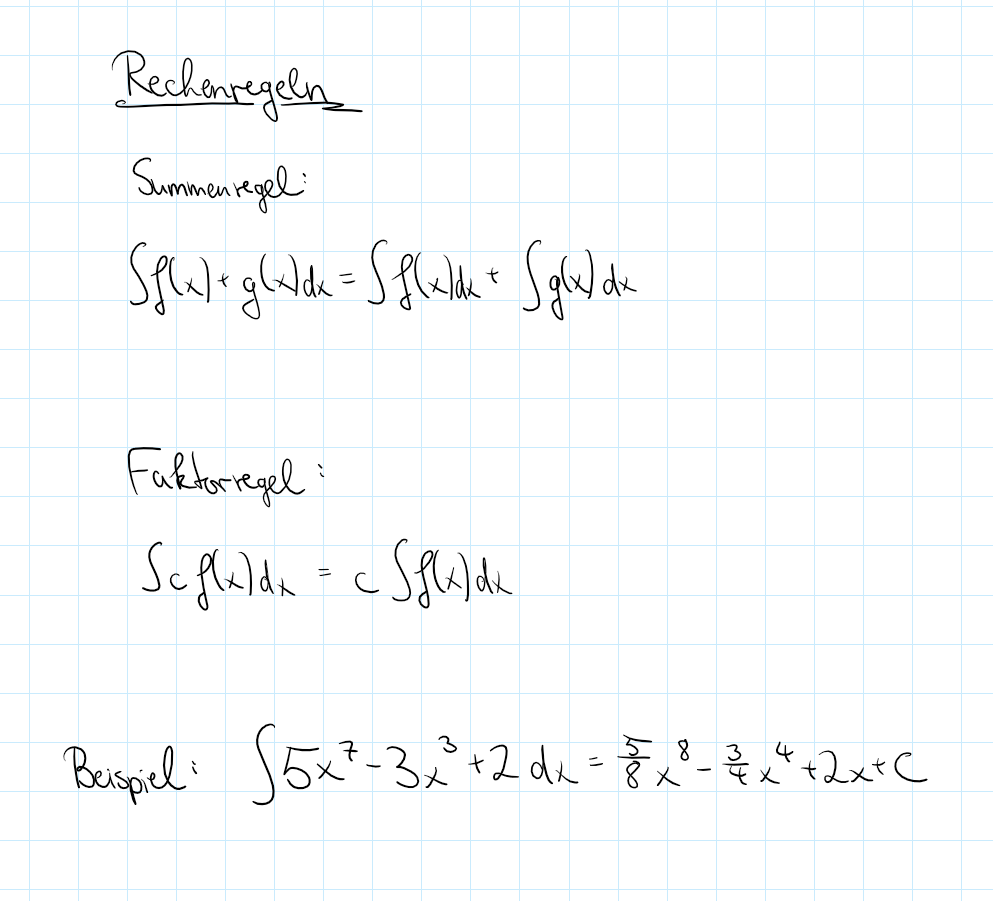 Rechenregeln
Summenregel:
∫f(x)+g(x)dx = ∫f(x)dx + ∫g(x)dx
Faktorregel:
∫c f(x)dx = c ∫f(x)dx
Beispiel: ∫5x⁷-3x³+2 dx = 5/8 x⁸ - 3/4 x⁴ + 2x + C